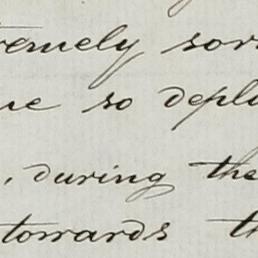 remely sor
me so depl
, during the
towards th